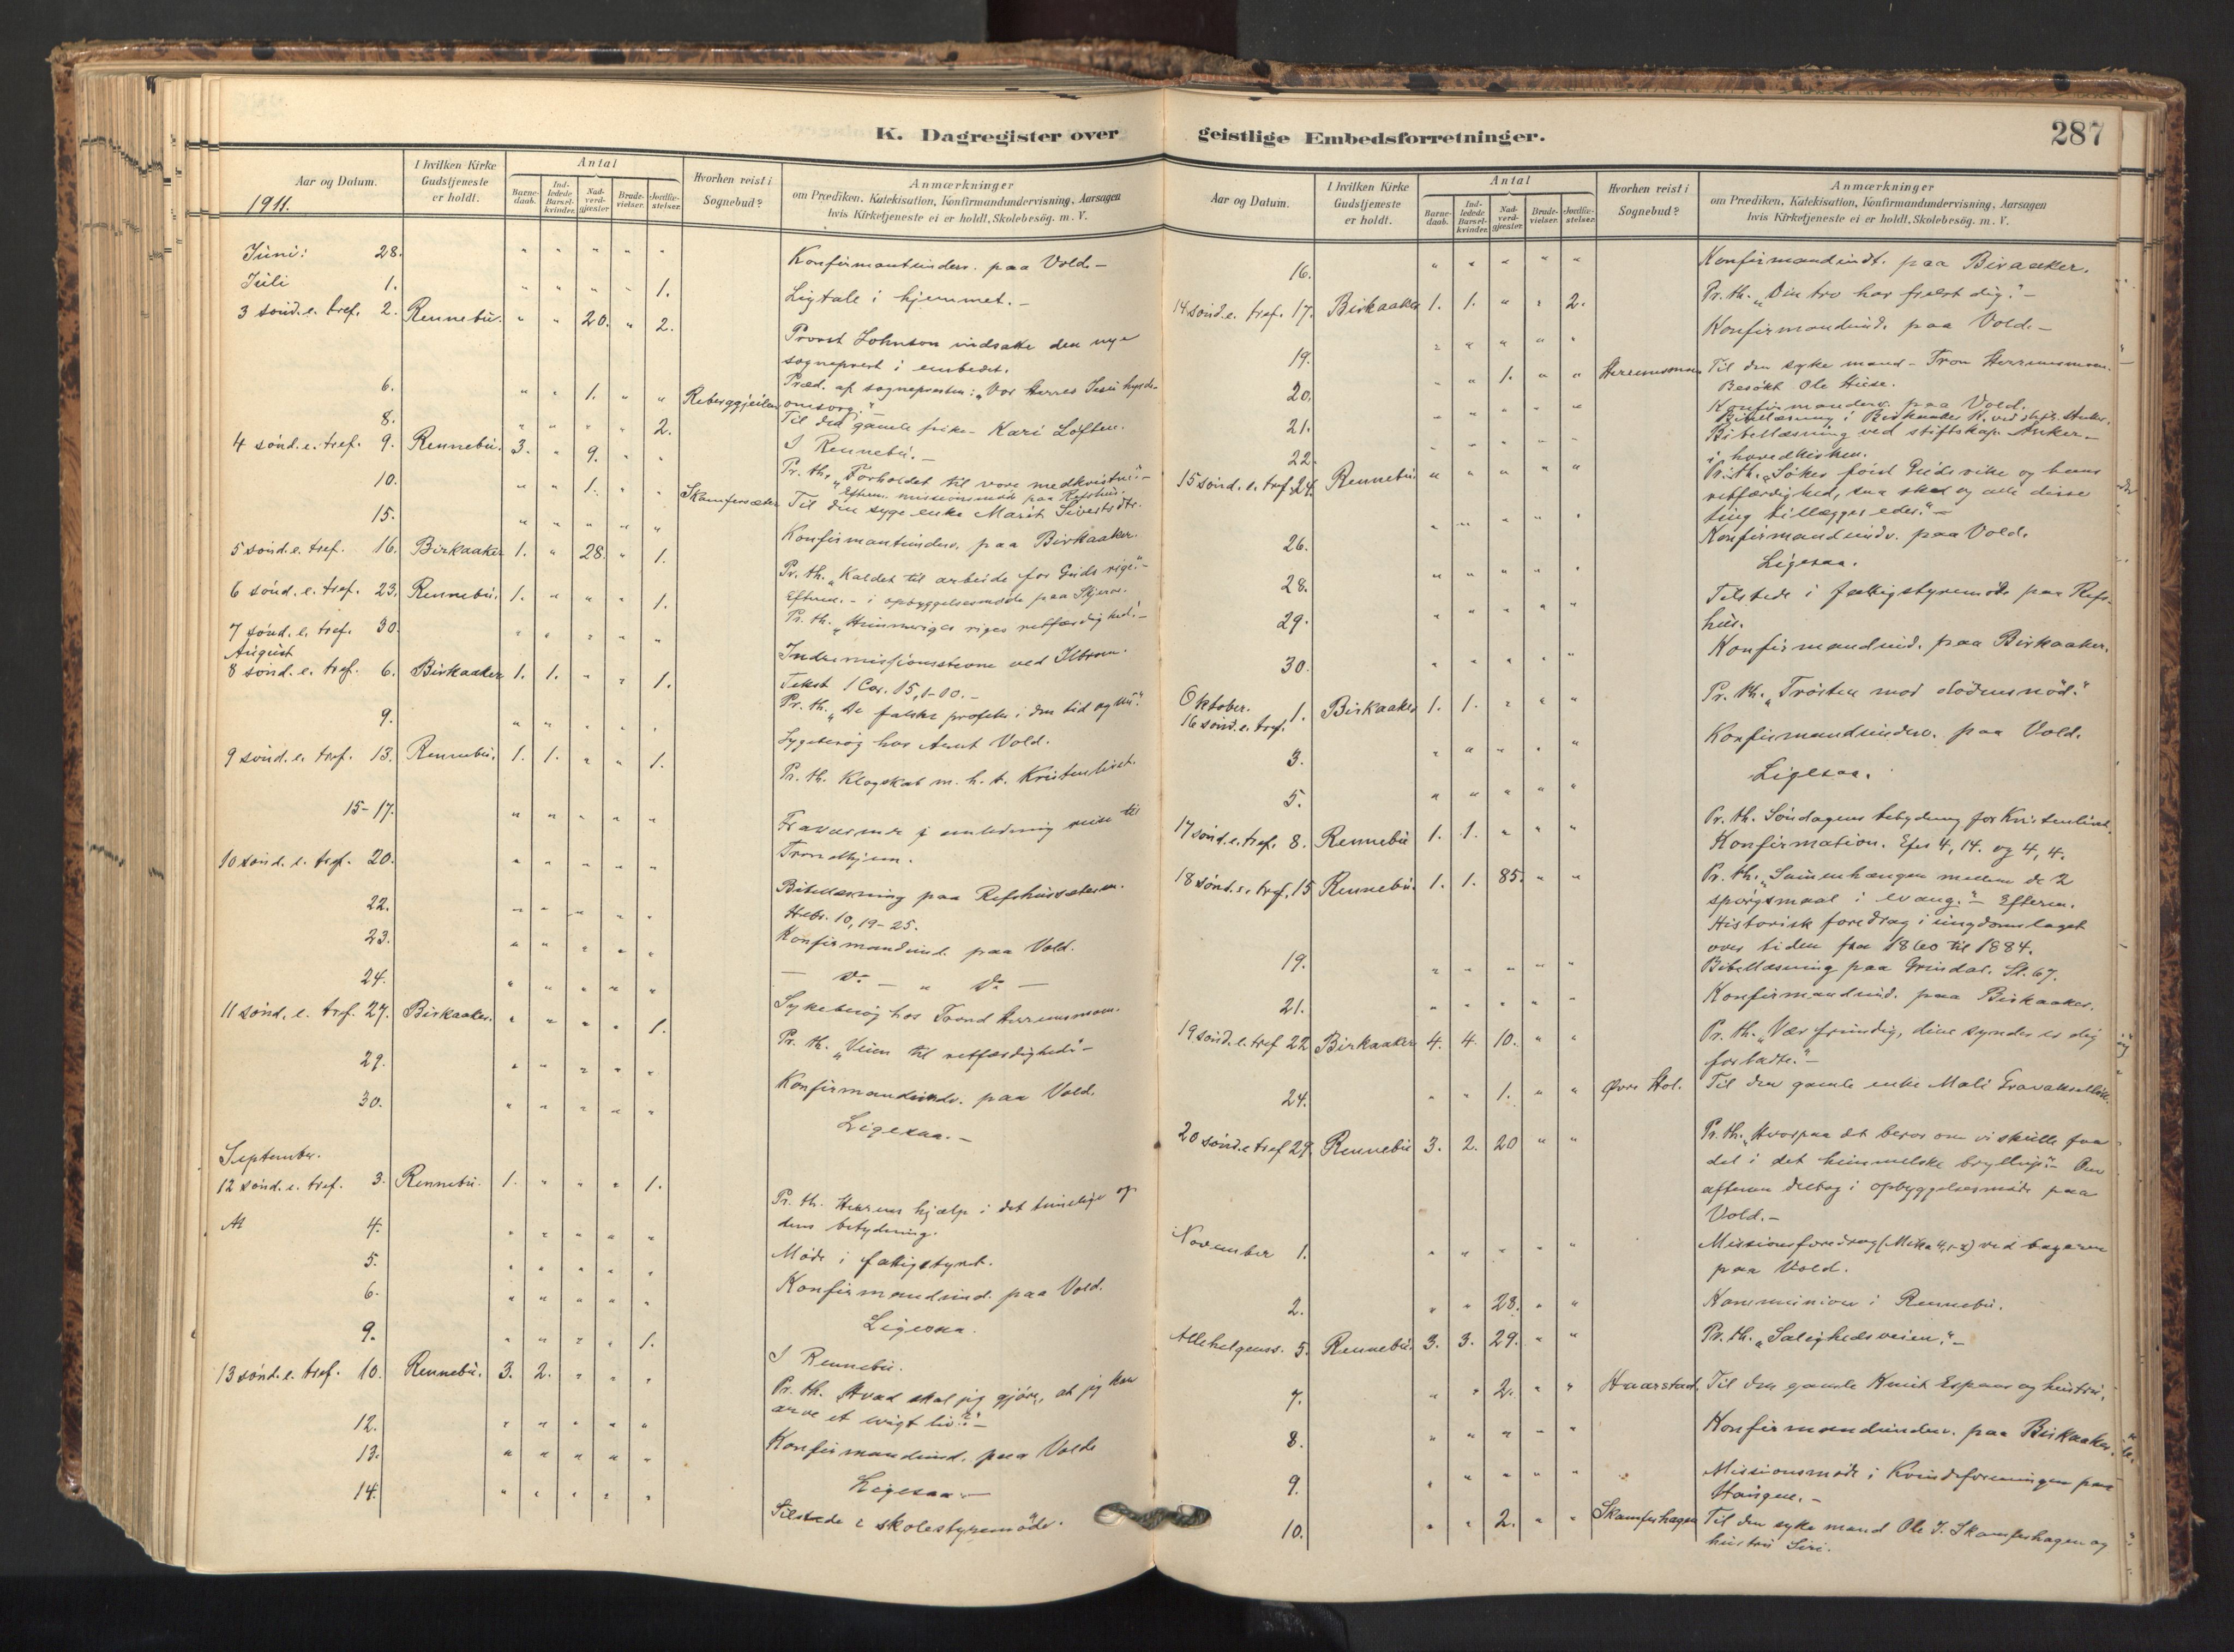 K. Dagregister over
Aar og Datum.
1911.
I hvilken Kirke Gudstjeneste er holdt.
Antal
Barnedaab.
Indledede Barselkvinder.
Nadverdgjæster
Brudevielser.
Jordfæstelser.
Hvorhen reist i Sognebud?
Anmærkninger
om Prædiken, Katekisation, Konfirmandundervisning, Aarsagen
hvis Kirketjeneste ei er holdt, Skolebesög. m. V.
Juni: 28. " " " " " Konfirmantunderv. paa Vold.-
Juli 1. " " " " 1. Ligtale i hjemmet.-
3 sönd. e. tref. 2. Rennebu. " " 20. " 2. Provst Johnson indsatte den nye
sogneprest i embedet.
Præd. af sognepresten: "Vor Herres Jesu
omsorg."
6. " " 1. " " Til den gamle Kari Loften.
8. " " " " 2. I Rennebu.-
4 sönd. e. tref. 9. Rennebu. 3. " 9. " " Pr. th. "Forholdet til vore medkristne"-
Efterm. missionsmöde paa Refshus.
10. " " 1. " " Skamfersæter Til den syge enke Marit Sivertsdtr.
15. " " " " " Konfirmantunderv. paa Birkaaker.
5 sönd. e. tref. 16. Birkaaker 1. " 28. " 1. Pr. th. "Kaldet til arbeide for Guds rige"-
Efterm. - i opbyggelsesmöde paa
6 sönd. e. tref. 23. Rennebu. 1. " " " 1. Pr. th. "Himmeriges riges retfærdighed"-
7 sönd. e. tref. 30. " " " " " Indremissionsstevne ved
Tekst 1 Cor. 15, 1-10.-
August
8 sönd. e. tref. 6. Birkaaker 1. 1. " " 1. Pr. th. "De falske profeter i den tid og nu."
9. " " " " " Sygebesög hos Vold.
9 sönd. e. tref. 13. Rennebu. 1. 1. " " 1. Pr. th. Klogskab m. h. t. Kristenlivet.
15-17. " " " " " Fraværende i anledning reise til
Trondhjem.
10 sönd. e. tref. 20. " " " " " Bibellæsning paa Refshussæteren.
Hebr. 10, 19-25.
22. " " " " " Konfirmandund. paa Vold.
23. " " " " " - Do - " Do -
24. " " " " " Sykebesög hos Trond Herremsmoen.
11 sönd. e. tref. 27. Birkaaker. " " " " 1. Pr. th. "Veien til retfærdighed"-
29. " " " " " Konfirmandunderv. paa Vold.
30. " " " " " Ligesaa.-
September.
12 sönd. e. tref. 3. Rennebu. 1. " " " 1. Pr. th. Herrens hjælp i det timelige og
dens betydning.
4. " " " " " Möde i fattigstyret.
5. " " " " " Konfirmandund. paa Vold.
6. " " " " " Ligesaa.
9. " " " " 1. I Rennebu.
13 sönd. e. tref. 10. Rennebu. 3. 2. " " " Pr. th. Hvad skal jeg gjöre, at jeg kan
arve et evigt liv?"-
12. " " " " " Konfirmandund. paa Vold
13. " " " " " Ligesaa.-
14. " " " " " Tilstede i skolestyremöde.
geistlige Embedsforretninger.
287
Aar og Datum.
I hvilken Kirke Gudstjeneste er holdt.
Antal
Barnedaab.
Indledede Barselkvinder.
Nadverdgjæster
Brudevielser.
Jordfæstelser.
Hvorhen reist i Sognebud?
Anmærkninger
om Prædiken, Katekisation, Konfirmandundervisning, Aarsagen
hvis Kirketjeneste ei er holdt, Skolebesög. m. V.
16. " " " " " Konfirmandundt. paa Birkaaker.
14 sönd. e. tref. 17. Birkaaker 1. 1. " " 2. Pr. th. "Din tro har frelst dig."-
19. " " " " " Konfirmandund. paa Vold.-
20. " " 1. " " Herremsmoen Til den syke mand - Tron Herremsmoen.
Besökt Ole
21. " " " " " Konfirmanderv. paa Vold.
Bibellæsning i Birkaaker K. ved stiftskap. Anker.
22. " " " " " Bibellæsning ved stiftskap. Anker-
i hovedkirken.
15 sönd. e. tref. 24. Rennebu " " " " " Pr. th. "Söker först Guds rike og hans
retfærdighed, saa skal og alle disse
ting tillægges eder."-
26. " " " " " Konfirmandundv. paa Vold.
28. " " " " " Ligesaa.
29. " " " " " Tilstede i fattigstyremöde paa Refs-
hus.
30. " " " " " Konfirmandund. paa Birkaaker.
Oktober.
16 sönd. e. tref. 1. Birkaaker 1. 1. " " " Pr. th. "Trösten mod dödens nöd."
3. " " " " " Konfirmandunderv. paa Vold.
5. " " " " " Ligesaa.
17 sönd. e. tref. 8. Rennebu 1. 1. " " " Pr. th. Söndagens betydning for Kristenlivet.
Konfirmation. Efes 4, 14. og 4, 4.
18 sönd. e. tref. 15 Rennebu. 1. 1. 85. " " Pr. th. "Sammenhængen mellem de 2
spörgsmaal i evang."- Efterm.
Historisk foredrag i ungdomslaget
over tiden fra 1860 til 1884.
19. " " " " " Bibellæsning paa Grindal. Sl. 67.
21. " " " " " Konfirmandund. paa Birkaaker.
19 sönd. e. tref 22 Birkaaker 4. 4. 10. " " Pr. th. "Vær frimodig, dine synder er dig
forladte."-
24. " " 1. " " Øvre Hol. Til den gamle enke Mali
20 sönd. e tref 29. Rennebu 3. 2. 20 " " Pr. th. "Hvorpaa det beror om vi skulle faa
del i det himmelske bryllup"- Om
aftenen deltog i opbyggelsesmöde paa
Vold.-
November 1. " " " " " Missionsforedrag (Mika 4, 1-2) ved
paa Vold.
2. " " 28. " " Kommunion i Rennebu.
Allehelgenss. 5. Rennebu. 3. 3. 29. " " Pr. th. "Salighedsveien."-
7. " " 2. " " Haarstad. Til den gamle Knut Espaas og hustru.
8. " " " " " Konfirmandunderv. paa Birkaaker.
9. " " " " " Missionsmöde i Kvindeforeningen paa
Haugen.-
10. " " 2. " " Skamferhagen Til den syke mand Ole J. Skamferhagen og
hustru Siri.